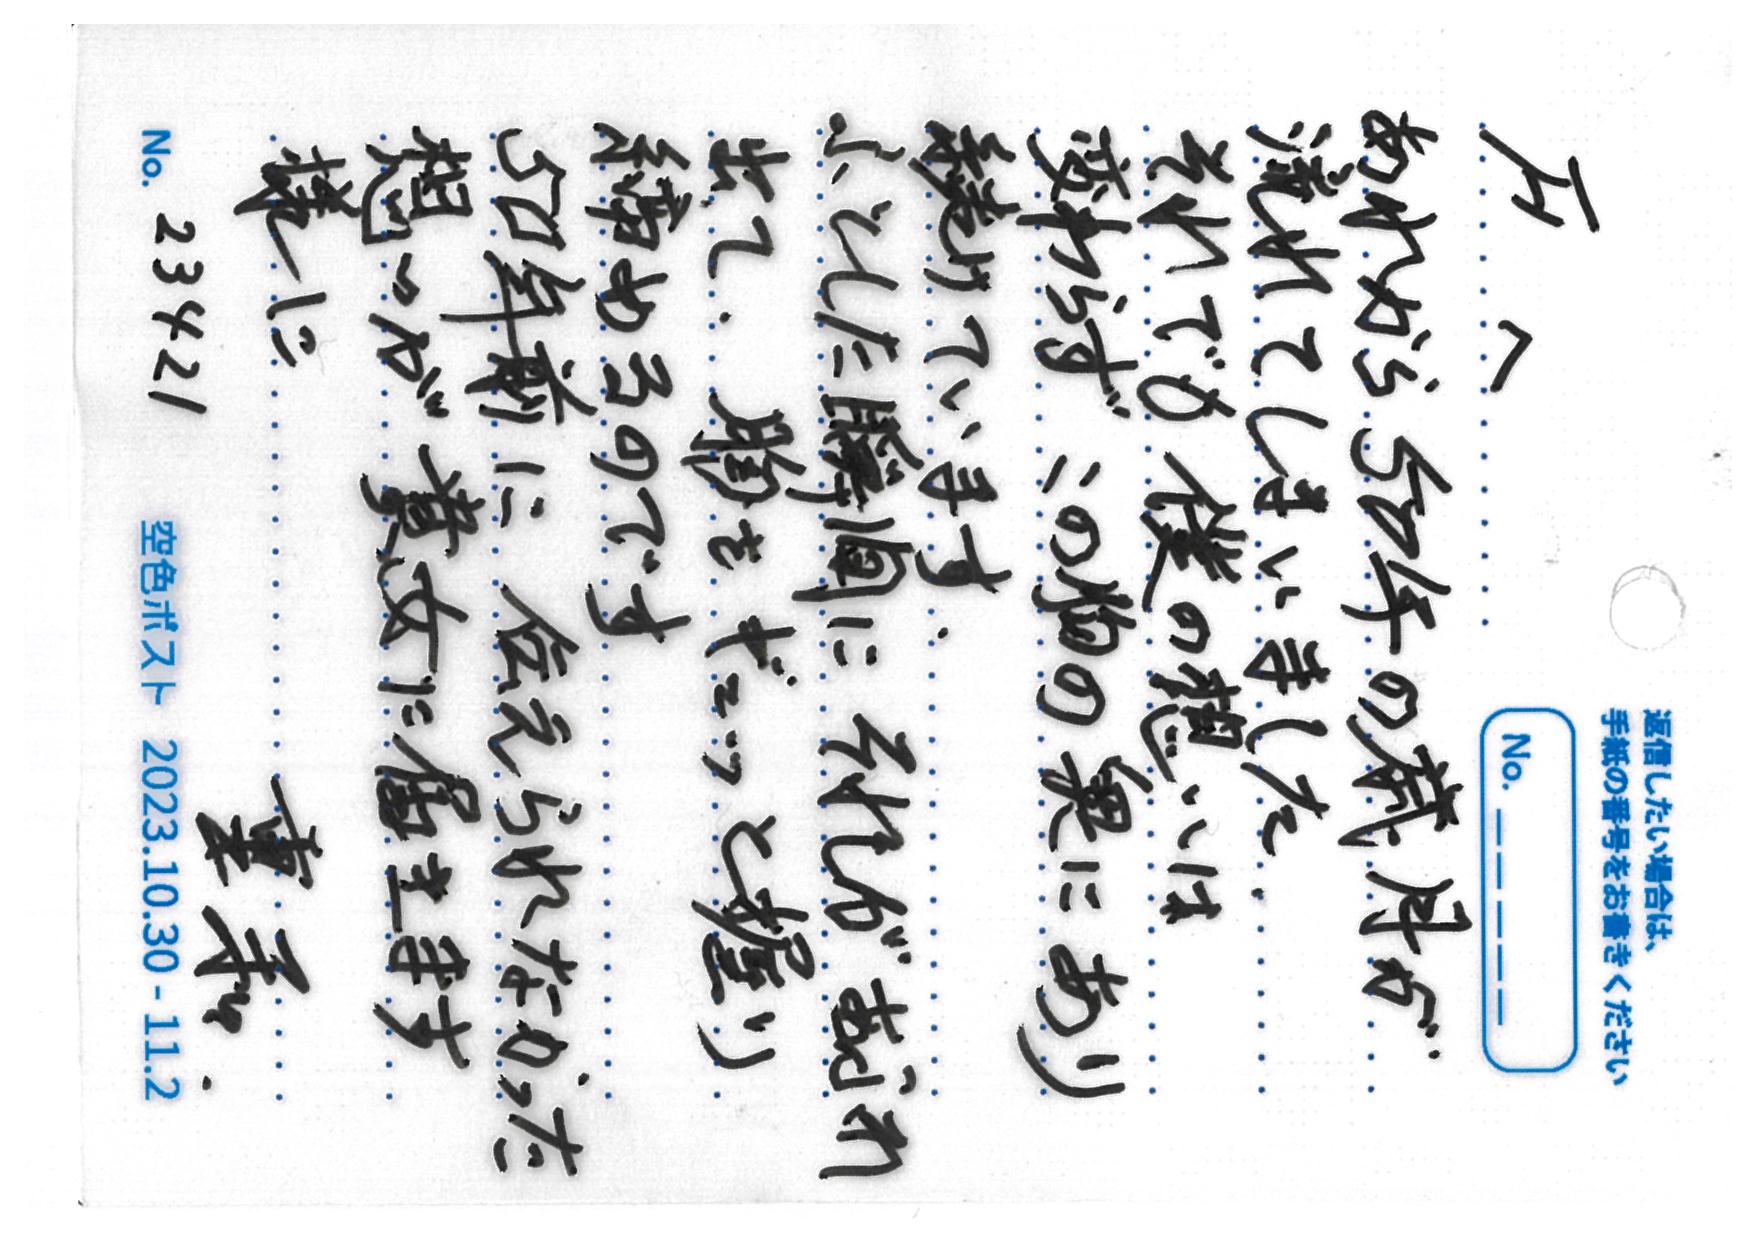 返信したい場合は、
手紙の番号をお書きください
No. _ _ _ _ _
へ
あれから50年の歳月が
流れてしまいました.
それでも 僕の想いは
変わらず この胸の奥に あり
続けています.
ふとした瞬間に それが あふれ
出て. 胸を ギュッと握り
締めるのです
50年前に 伝えられなかった
想いが 貴女に届きます
様に
重和.
No. 23421
空色ポスト 2023.10.30 - 11.2